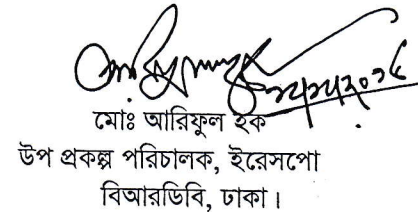 মোঃ আরিফুল হক
উপ প্রকল্প পরিচালক, ইরেসপো
বিআরডিবি, ঢাকা।